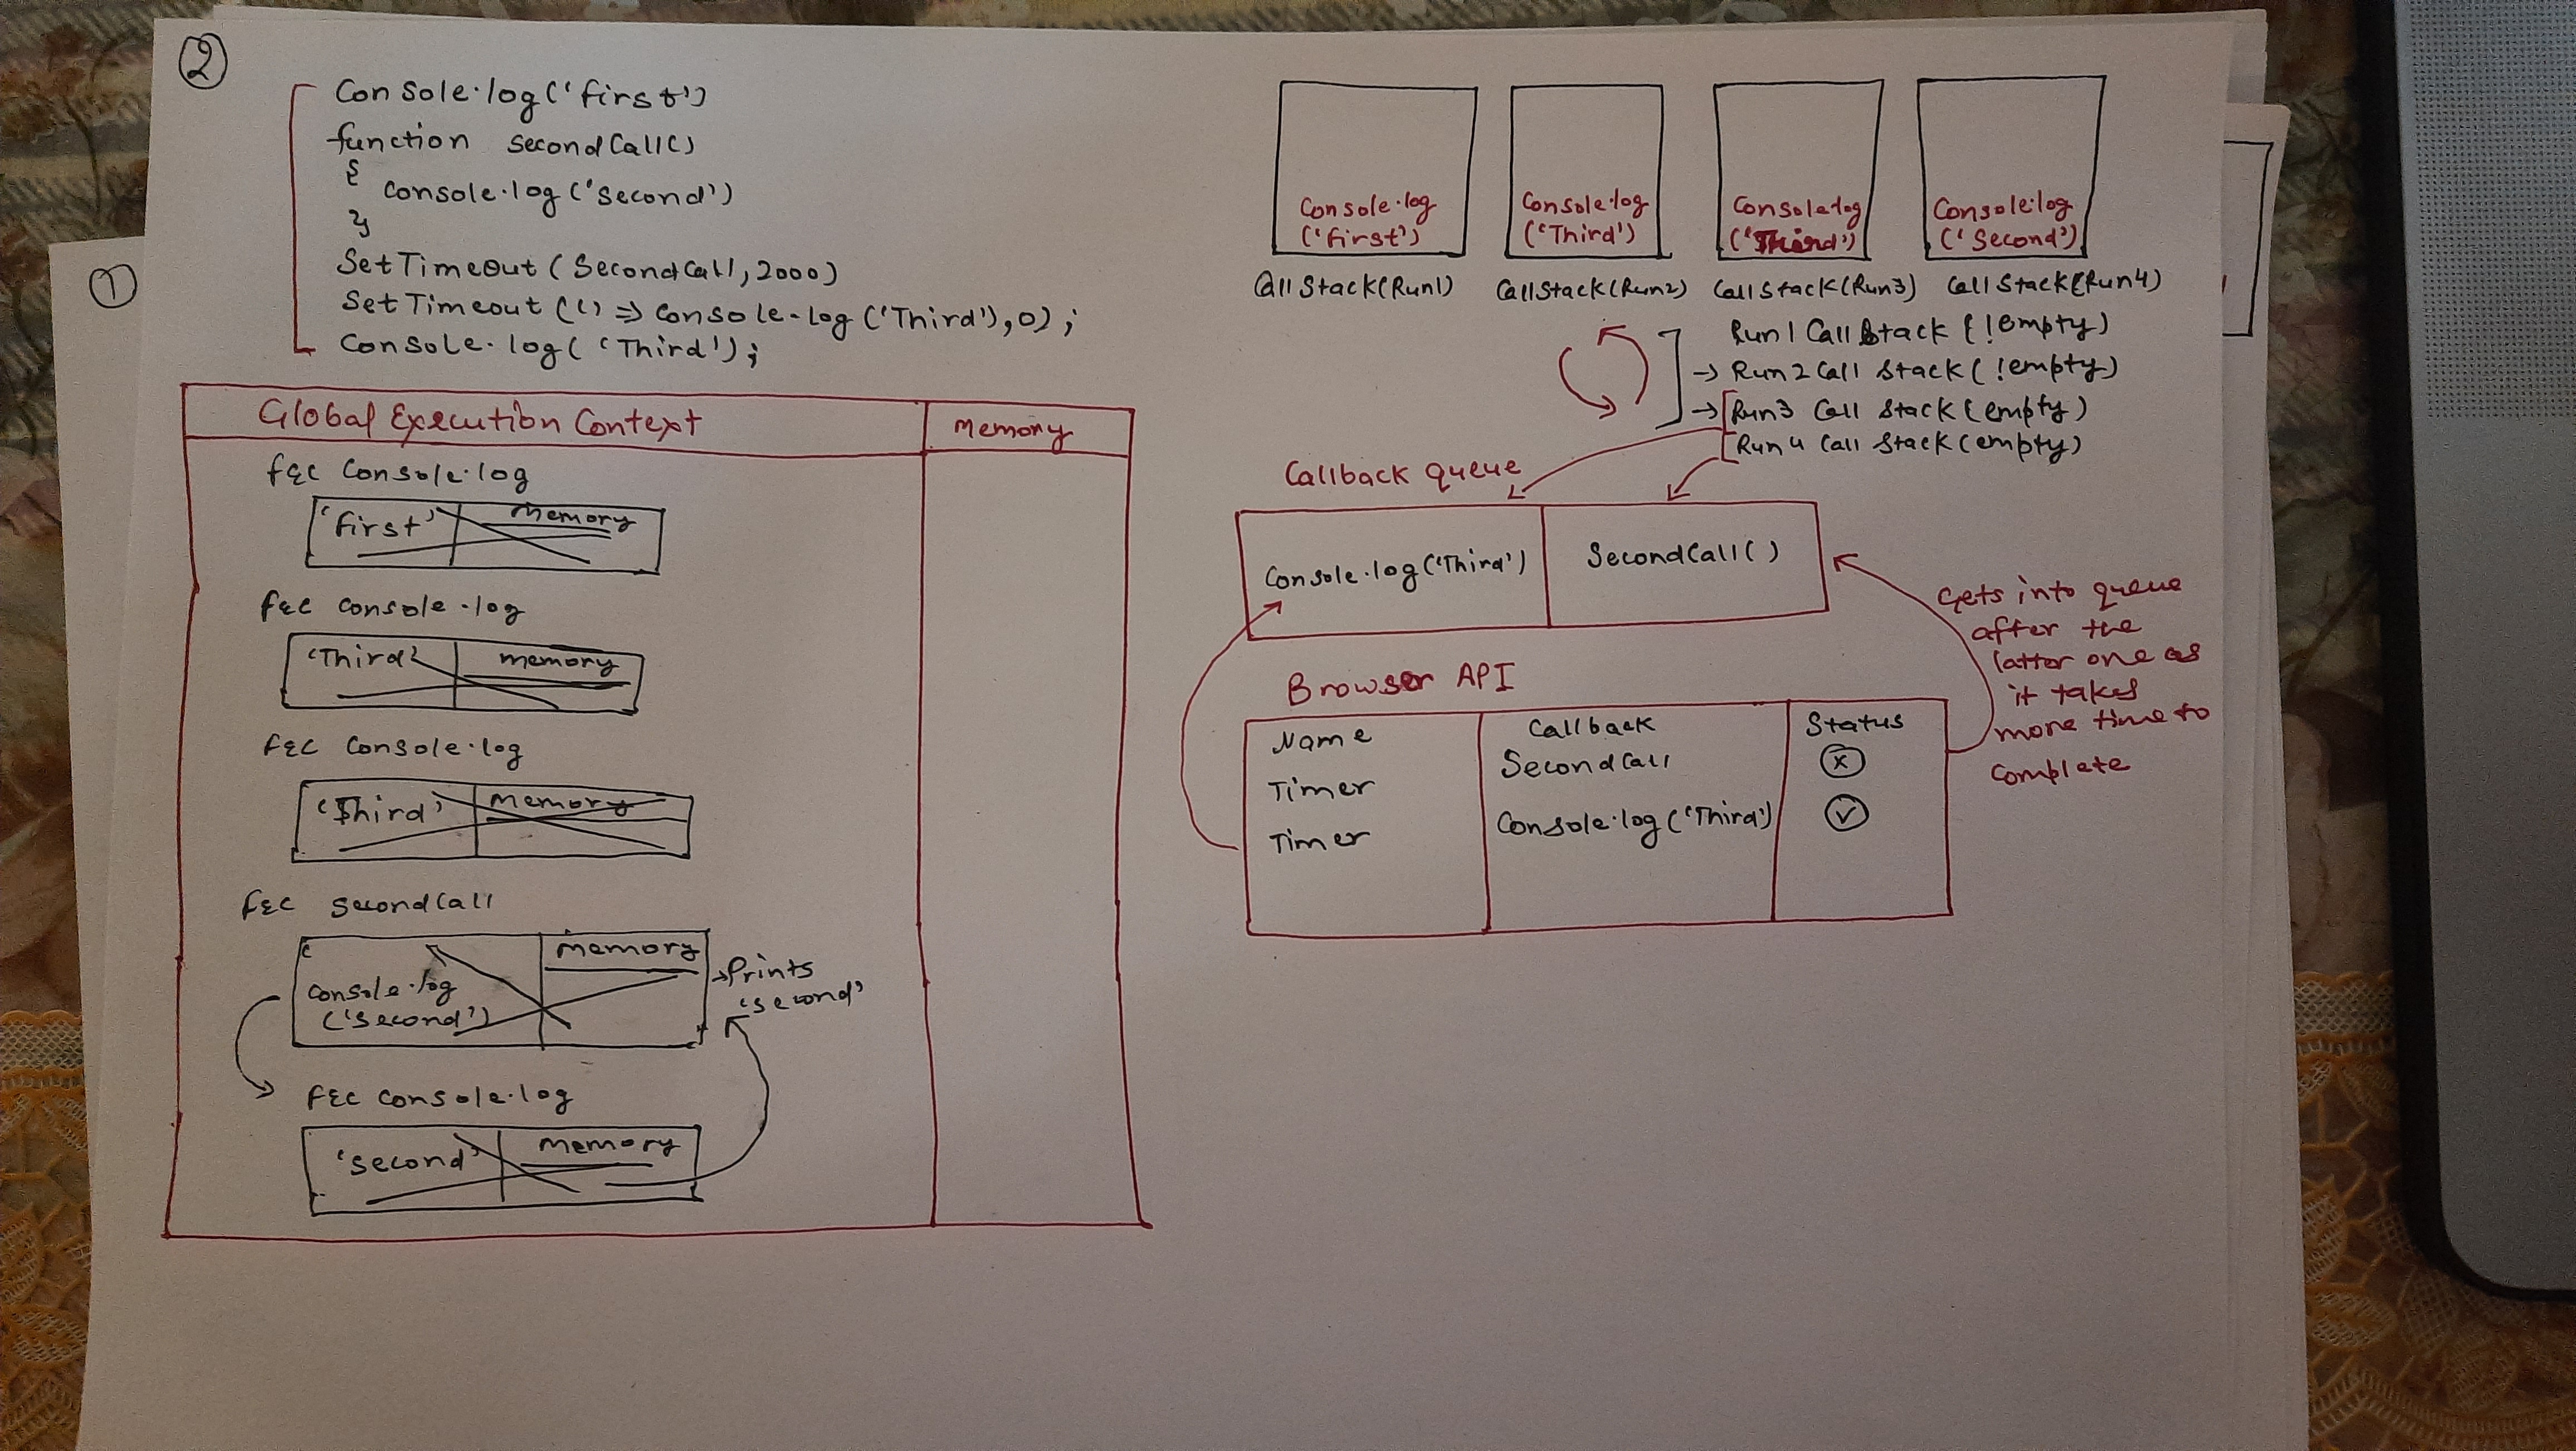 ①
②
Console.log('first')
function secondCall()
{ console.log('second')
}
SetTimeout(SecondCall,2000)
SetTimeout(() => Console.log('Third'),0);
Console.log('Third');
Global Execution Context
Memory
fEC Console.log
'first'
memory
fEC console.log
'Third'
memory
fEC Console.log
'Third'
memory
fEC secondCall
Console.log
('second')
memory
→ Prints
'second'
fEC console.log
'second'
memory
Console.log
('first')
Console.log
('Third')
Console.log
('Third')
Console.log
('Second')
CallStack(Run1)
CallStack(Run2)
CallStack(Run3)
CallStack(Run4)
Run 1 CallStack (!empty)
→ Run 2 Call Stack (!empty)
→ Run 3 Call Stack (empty)
Run 4 Call Stack (empty)
Callback queue
Console.log('Third')
SecondCall()
Browser API
Name
Callback
Status
Timer
SecondCall
x
Timer
Console.log('Third')
✓
Gets into queue
after the
latter one as
it takes
more time to
complete